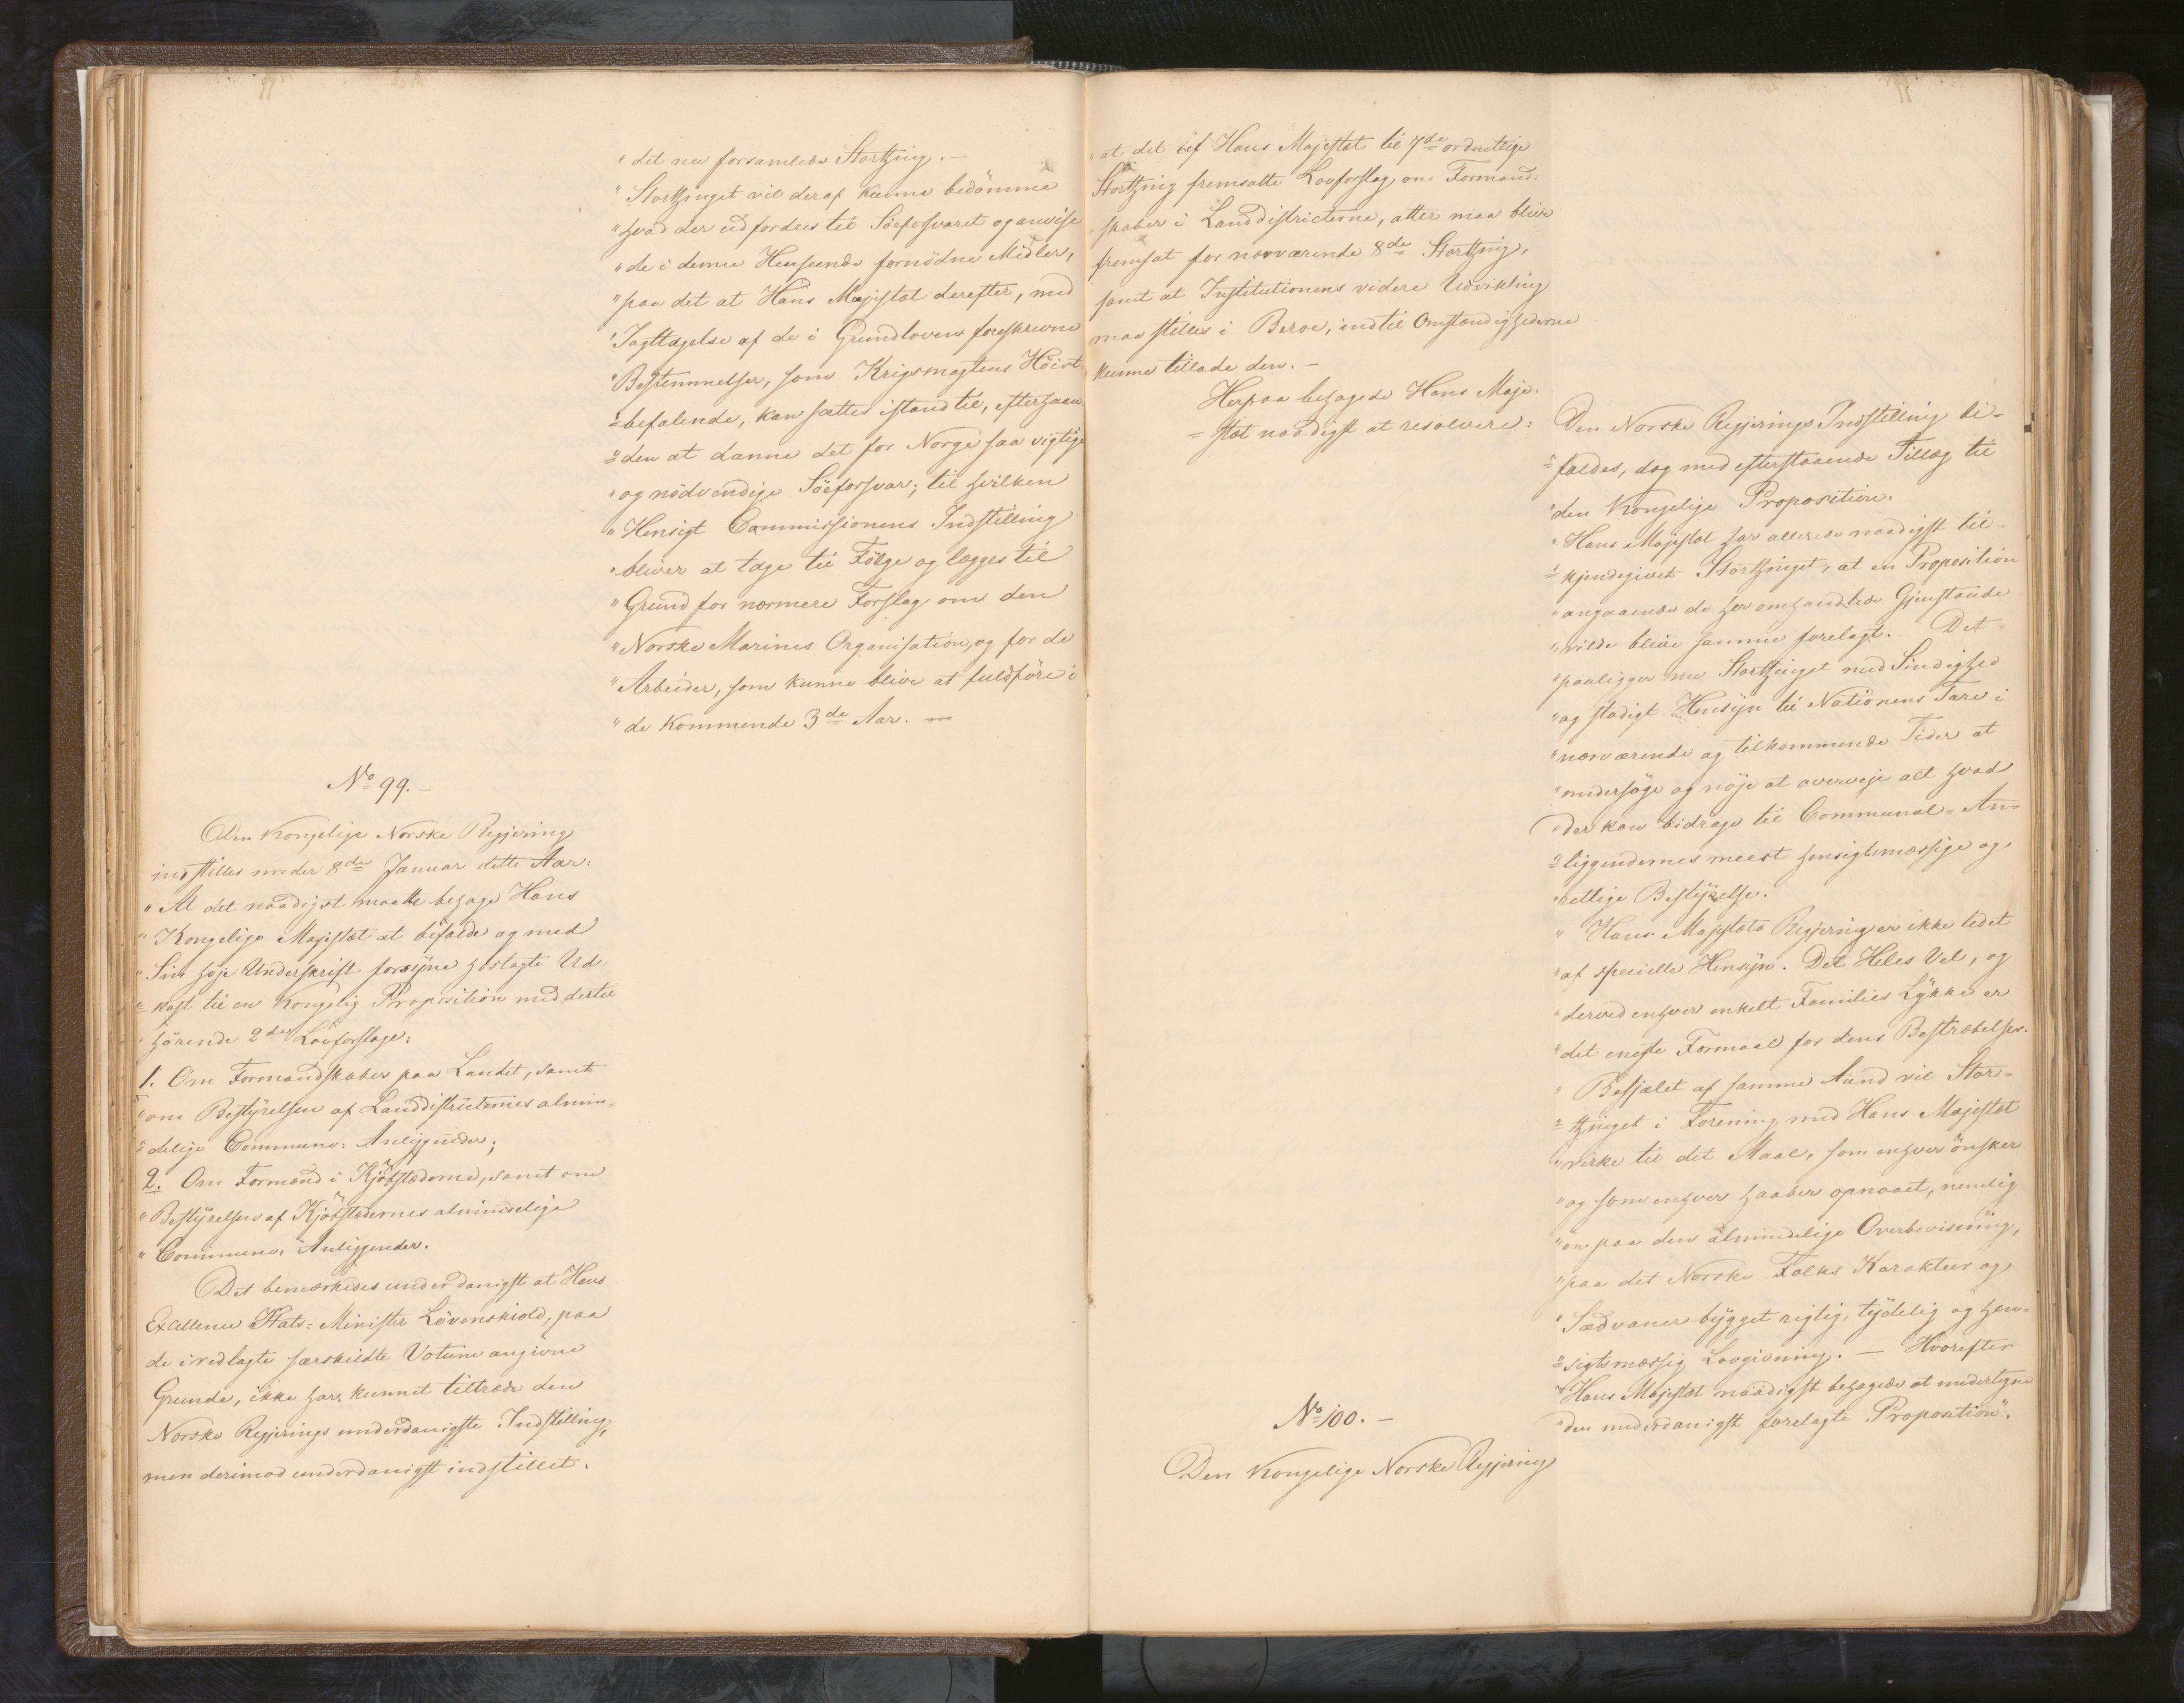 "det nu forsamlede Storthing. –
"Storthinget vil deraf kunne bedömme
"hvad der udfordres til Söeforsvaret og anvise
"de i denne Henseende fornödne Midler,
"paa det at Hans Majestæt derefter, med
"Iagttagelse af de i Grundloven foreskrevne
"Bestemmelser, som Krigsmagtens Höist-
"=befalende, kan sættes istand til, efterhaan
"=den at danne det for Norge saa vigtige
"og nödvendige Söeforsvar; til hvilken
"Hensigt Commissionens Indstilling
"bliver at tage til Fölge og lægges til
"Grund for nærmere Forslag om den
"Norske Marines Organisation, og for de
"Arbeider, som kunne blive at fuldföre i
"de kommende 3de Aar. —
No 99. –
Den Kongelige Norske Regjering
indstiller under 8de Januar dette Aar:
"At det naadigst maatte behage Hans
"Kongelige Majestæt at bifalde og med
"Sin høje Underskrift forsyne hoslagte Ud-
"=kast til en Kongelig Proposition med dertil
"hörende 2de Lovforslage:
1. Om Formandskaber paa Landet, samt
"om Bestyrelsen af Landdistricternes almin-
"=delige Communs-Anliggender;
2. Om Formænd i Kjöbstæderne, samt om
"Bestyrelsen af Kjöbstædernes almindelige
"Communs-Anliggender.
Det bemærkedes underdanigst at Hans
Excellence Stats-Minister Lövenskiold, paa
de i vedlagte særskildte Votum angivne
Grunde, ikke har kunnet tiltræde den
Norske Regjerings underdanigste Indstilling,
men derimod underdanigst indstillet:
"at det af Hans Majestæt til 7de ordentlige
Storthing fremsatte Lovforslag om Formand-
"skaber i Landdistricterne, atter maa blive
fremsat for nærværende 8de Storthing,
samt at Institutionens videre Udvikling
maa stilles i Beroe, indtil Omstændighederne
kunne tillade den. –
Herpaa behagede Hans Maje-
=stæt naadigst at resolvere:
Den Norske Regjerings Indstilling bi-
"=faldes, dog med efterstaaende Tillæg til
"den Kongelige Proposition.
"Hans Majestæt har allerede naadigst til-
"=kjendegivet Storthinget, at en Proposition
"angaaende de her omhandlede Gjenstande
"vilde blive samme forelagt. – Det
"paaligger nu Storthinget med Sindighed
"og stadigt Hensyn til Nationens Tarv i
"nærværende og tilkommende Tider at
"undersöge og nöje at overveje alt hvad
"der kan bidrage til Communal-An-
"=liggendernes meest hensigtsmæssige og
"rettige Bestyrelse.
"Hans Majestæts Regjering er ikke ledet
"af specielle Hensyn. Det Heles Vel, og
"derved enhver enkelt Families Lykke er
"det eneste Formaal for dens Bestræbelser.
"Besjælet af samme Aand vil Stor-
"=thinget i Forening med Hans Majestæt
"virke til det Maal, som enhver önsker
"og som enhver haaber opnaaet, nemlig
"en paa den almindelige Overbeviisning,
"paa det Norske Folks Karakteer og
"Sædvaner bygget rigtig, tydelig og hen-
"=sigtsmæssig Lovgivning. — Hvorefter
"Hans Majestæt naadigst behagede at undertegne
"den underdanigst forelagte Proposition".
No 100. –
Den Kongelige Norske Regjering